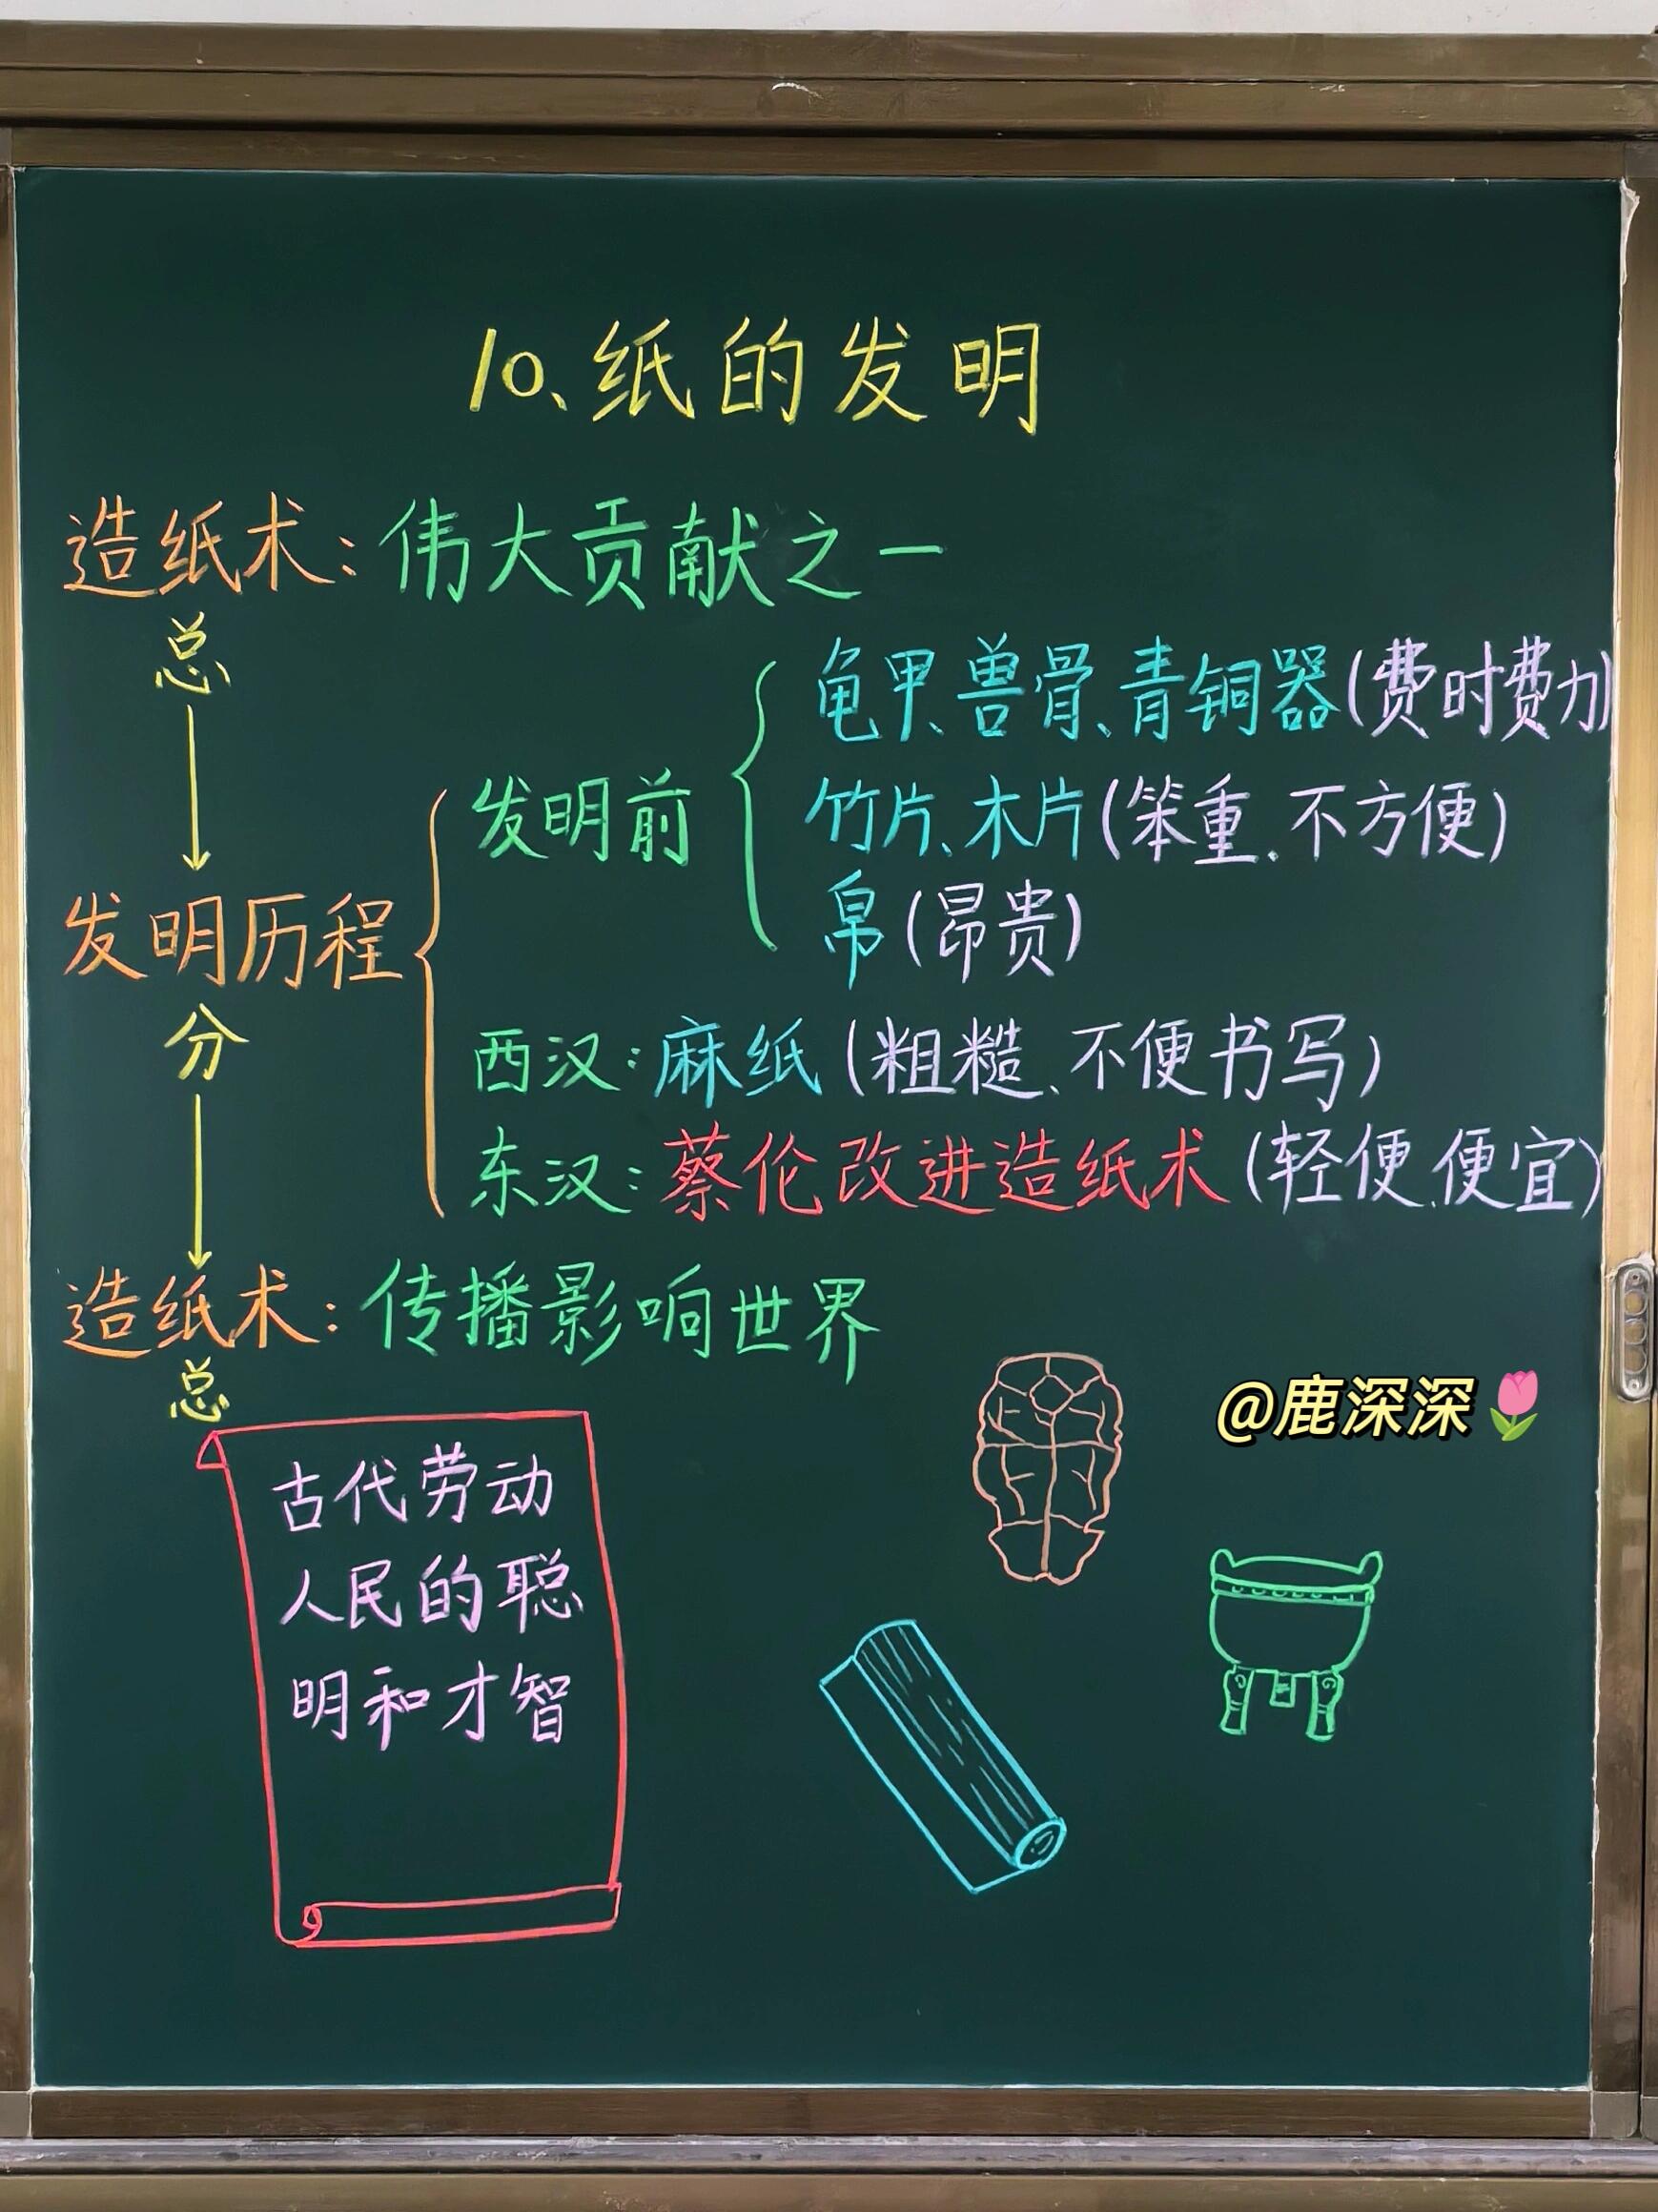 10、纸的发明
造纸术：伟大贡献之一
总
龟甲、兽骨、青铜器(费时费力)
发明前
竹片、木片(笨重、不方便)
帛(昂贵)
发明历程
分
西汉：麻纸(粗糙、不便书写)
东汉：蔡伦改进造纸术(轻便、便宜)
造纸术：传播影响世界
总
@鹿深深🌷
古代劳动
人民的聪
明和才智